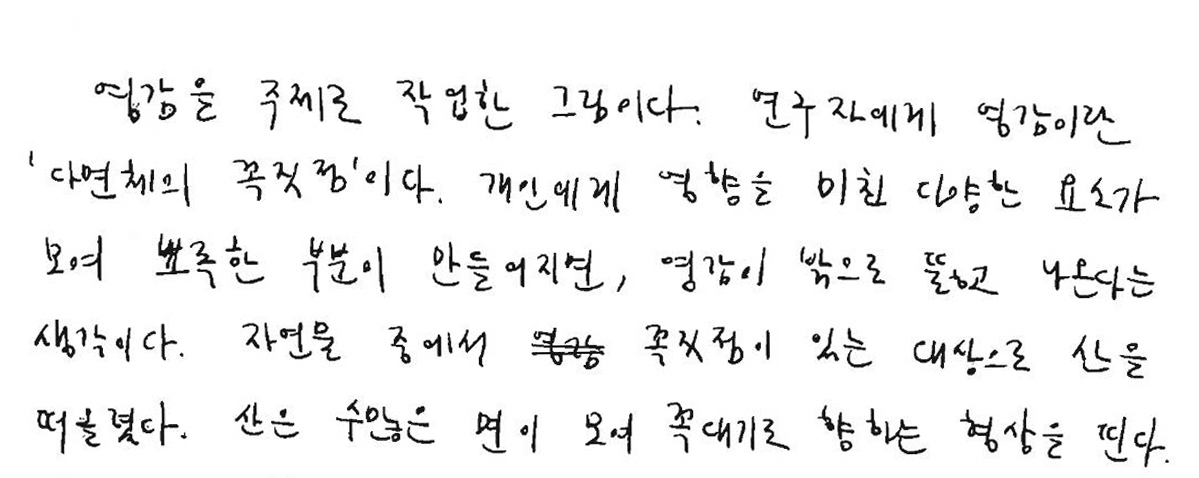 영감을 주제로 작업한 그림이다. 연구자에게 영감이란
'다면체의 꼭짓점'이다. 개인에게 영향을 미친 다양한 요소가
모여 뾰족한 부분이 만들어지면, 영감이 밖으로 뚫고 나온다는
생각이다. 자연물 중에서 영감 꼭짓점이 있는 대상으로 산을
떠올렸다. 산은 수많은 면이 모여 꼭대기로 향하는 형상을 띤다.